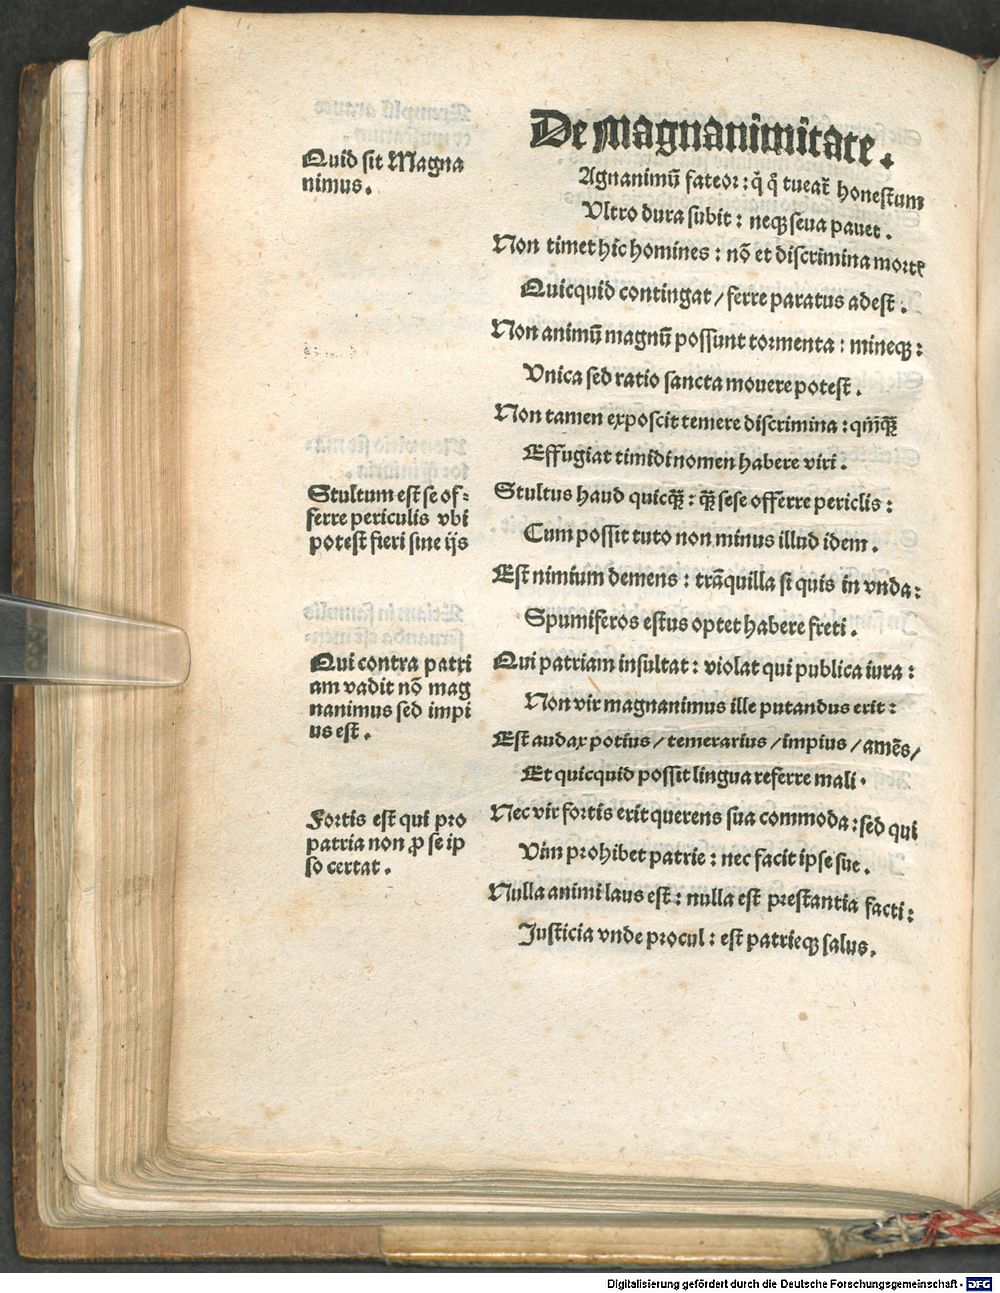 De Magnanimitate.
Quid sit Magna
nimus.
Agnanimū fateor: q̄ q̄ tueat᷑ honestum
Vltro dura subit: neqꝫ seua pauet.
Non timet hic homines: nō et discrimina mortꝭ
Quicquid contingat / ferre paratus adest.
Non animū magnū possunt tormenta: mineqꝫ:
Vnica sed ratio sancta mouere potest.
Non tamen exposcit temere discrimina:
Effugiat timidi nomen habere viri.
Stultum est se of⸗
ferre periculis vbi
potest fieri sine ijs
Stultus haud quicq̄ꝫ: q̄ꝫ sese offerre periclis:
Cum possit tuto non minus illud idem.
Est nimium demens: trāquilla si quis in vnda:
Spumiferos estus optet habere freti.
Qui contra patri
am vadit nō mag
nanimus sed impi
us est.
Qui patriam insultat: violat qui publica iura:
Non vir magnanimus ille putandus erit:
Est audax potius / temerarius / impius / amēs /
Et quicquid possit lingua referre mali.
Fortis est qui pro
patria non ꝓ se ip
so certat.
Nec vir fortis erit querens sua commoda: sed qui
Vim prohibet patrie: nec facit ipse sue.
Nulla animi laus est: nulla est prestantia facti:
Justicia vnde procul: est patrieqꝫ salus.
Digitalisierung gefördert durch die Deutsche Forschungsgemeinschaft - DFG